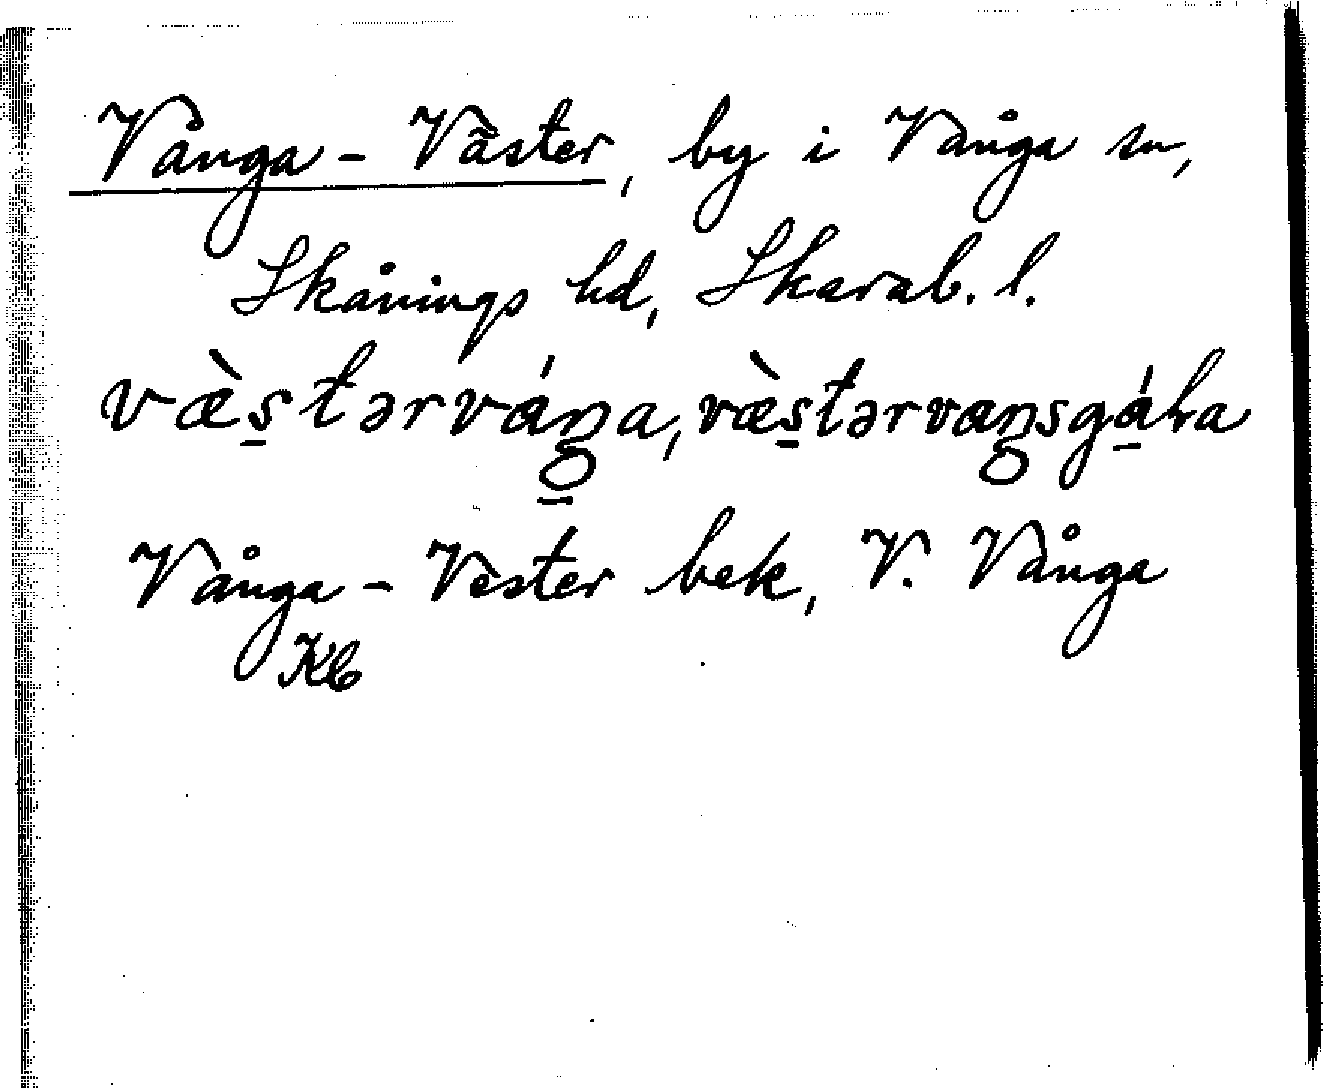 Vånga - Väster, by i Vånga sn,
Skånings hd, Skarab. l.
væ̀s̲tərváŋa, væ̀s̲tərvaŋsgá̲ɬa
Vånga - Vester bek, V. Vånga
Kb